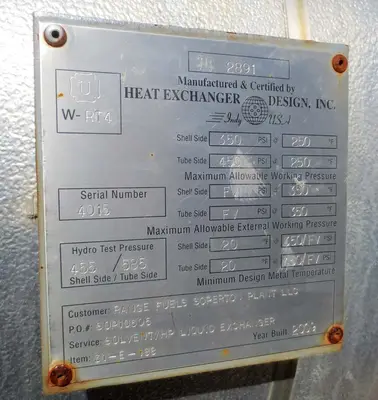 2891
U
W-RT4
Manufactured & Certified by
HEAT EXCHANGER DESIGN, INC.
Indy U.S.A
Shell Side 350 PSI @ 250 °F
Tube Side 450 PSI @ 250 °F
Maximum Allowable Working Pressure
Serial Number
Shell Side FV PSI @ 350 °F
Tube Side FV @ 350
Maximum Allowable External Working Pressure
Hydro Test Pressure
455 / 585
Shell Side / Tube Side
Shell Side 20 °F @
Tube Side 20 °F @
Minimum Design Metal Temperature
Customer: RANGE FUELS SOPERTON PLANT LLC
P.O #:
Service: SOLVENT/HP LIQUID EXCHANGER
Year Built 2009
Item: